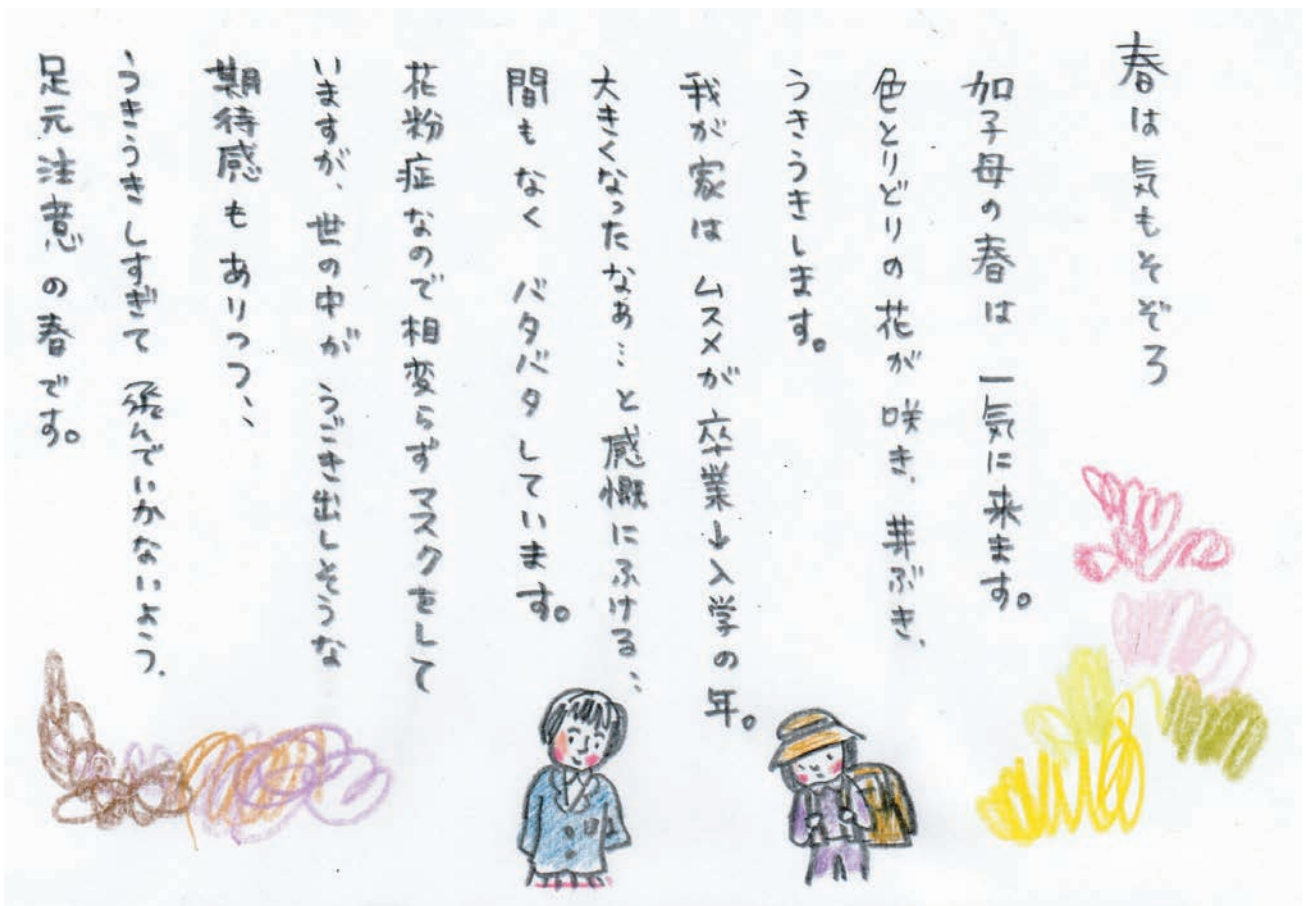 春は気もそぞろ
加子母の春は 一気に来ます。
色とりどりの花が 咲き、芽ぶき、
うきうきします。
我が家は ムスメが 卒業→入学の年。
大きくなったなぁ…と感慨にふける‥
間もなく バタバタしています。
花粉症なので相変らずマスクをして
いますが、世の中が うごき出しそうな
期待感もありつつ、、
うきうきしすぎて 飛んでいかないよう、
足元注意の春です。